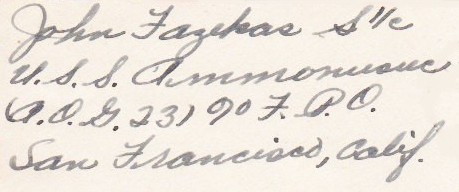 John Fazekas S1/c
U.S.S. Ammonusuc
(A.O.G. 23) % F.P.O.
San Francisco, Calif.